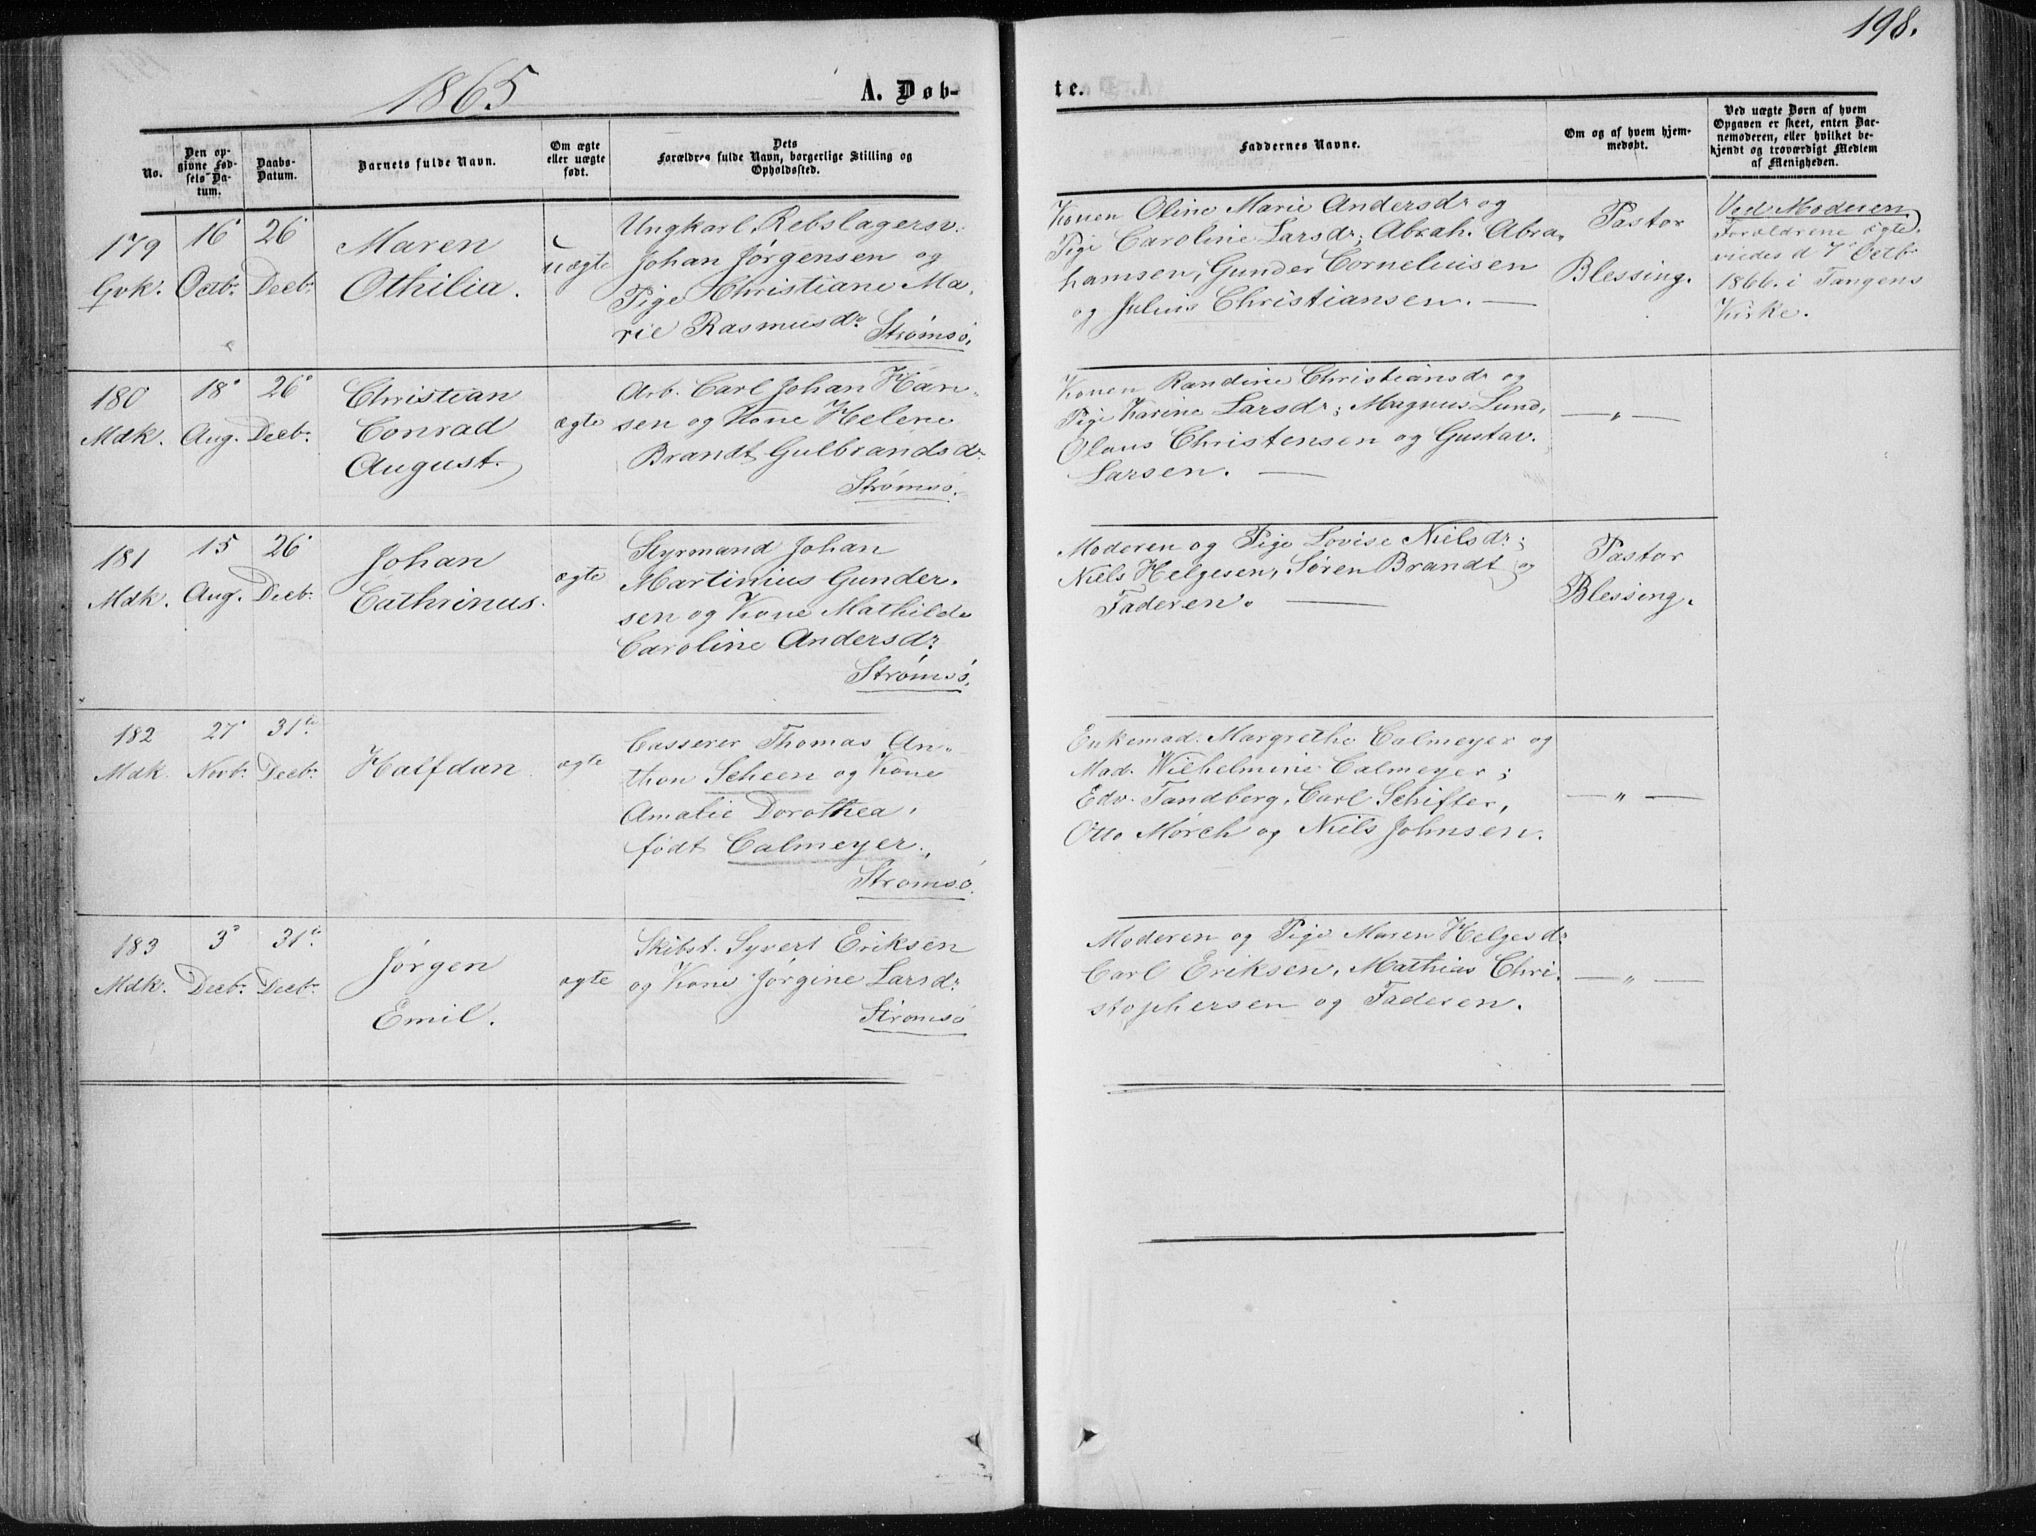 198.
1865
A. Døb-
te.
No.
Den op-
givne Fød-
sels-Da-
tum.
Daabs-
Datum.
Barnets fulde Navn.
Om ægte
eller uægte
født.
Dets
Forældres fulde Navn, borgerlige Stilling og
Opholdssted.
Faddernes Navne.
Om og af hvem hjem-
medøbt.
Ved uægte Børn af hvem
Opgaven er skeet, enten Bar-
nemoderen, eller hvilket be-
kjendt og troværdigt Medlem
af Menigheden.
179
Gvk.
16
Octbr.
26
Decbr.
Maren
Othilia.
uægte
Ungkarl, Rebslagersv.
Johan Jørgensen og
Pige Christiane Ma-
rie Rasmusdr.
Strømsø.
Konen Oline Marie Andersdr og
Pige Caroline Larsdr; Abrah. Abra-
hamsen, Gunder Corneliusen
og Julius Christiansen. —
Pastor
Blessing.
Ved Moderen
Forældrene ægte-
viedes d 7 Octbr
1866 i Tangens
Kirke.
180
Mdk.
18
Aug.
26
Decbr.
Christian
Conrad
August.
ægte
Arb. Carl Johan Han-
sen og Kone Helene
Brandt Gulbrandsdr.
Strømsø.
Konen Randine Christiansdr og
Pige Karine Larsdr; Magnus Lund,
Olaus Christensen og Gustav
Larsen. —
— " —
181
Mdk.
15
Aug.
26
Decbr.
Johan
Cathrinus.
ægte
Styrmand Johan
Martinius Gunder-
sen og Kone Mathilde
Caroline Andersdr.
Strømsø.
Moderen og Pige Lovise Nielsdr;
Niels Helgesen, Søren Brandt og
Faderen. —
Pastor
Blessing.
182
Mdk.
27
Novbr.
31te
Decbr.
Halfdan
ægte
Casserer Thomas An-
thon Scheen og Kone
Amalie Dorothea,
født Calmeyer.,
Strømsø.
Enkemad. Margrethe Calmeyer og
Mad. Wilhelmine Calmeyer;
Edv. Tandberg, Carl Schifter,
Otto Mørch og Niels Johnsen.
— " —
183
Mdk.
3
Decbr.
31te
Decbr.
Jørgen
Emil.
ægte
Skibst. Syvert Eriksen
og Kone Jørgine Larsdr.
Strømsø
Moderen og Pige Maren Helgesdr.
Carl Eriksen, Mathias Chri-
stophersen og Faderen.
— " —